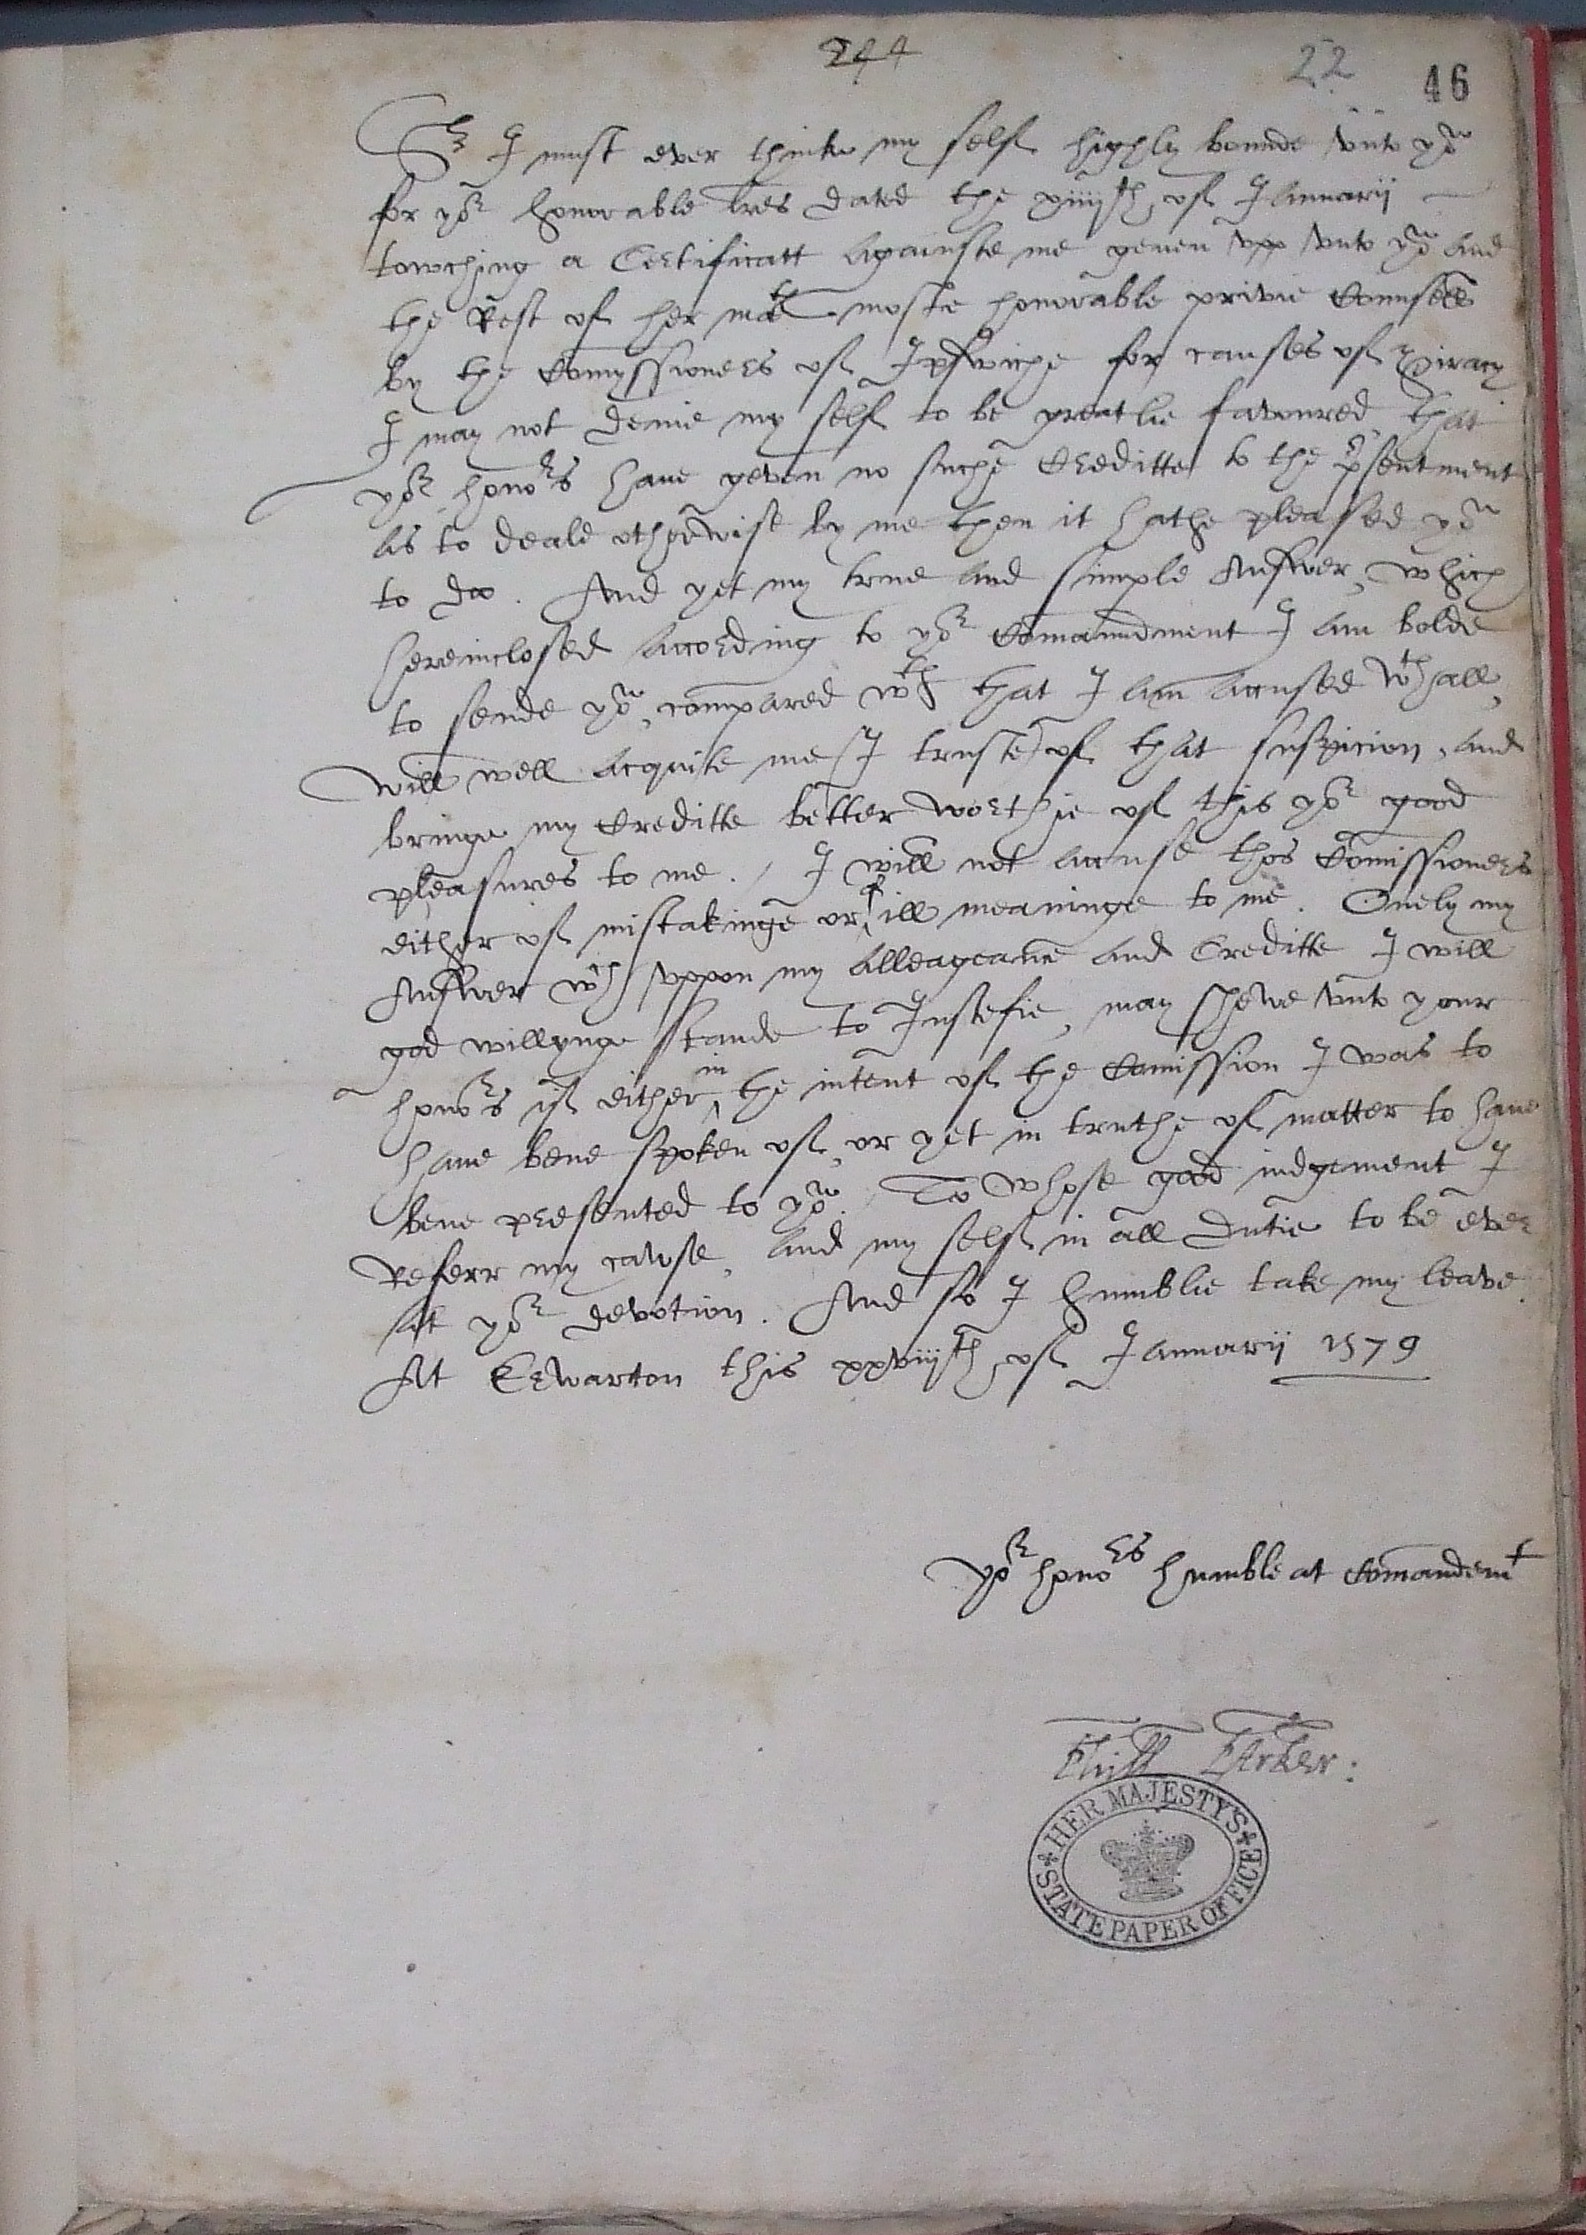 244
22
46
Sr I must ever thinke my self highly bounde vnto you
for yor honorable lres dated the xiiijth of Januarij
towching a Certificatt againste me geuen vpp vnto you and
the Rest of her matis moste honorable privie Counsell
by the Comyssioners of Ipswiche for causes of Piracy
I may not denie my self to be greatlie favoured, that
yor honors haue geven no suche Creditte to the psentment
as to deale otherwise by me then it hathe pleased you
to do. And yet my true and simple Answer, which
hereinclosed according to yor Comaundment I am bolde
to sende you, compared wth that I am accused wthall,
will well acquite me (I truste) of that suspicion, and
bringe my Creditte better worthie of this yor good
pleasures to me. / I will not accuse thos Comissioners
either of mistakinge or of ill meaninge to me. Onely my
Answer wch vppon my alleageance and Creditte I will
god willynge stande to Justefie, may shewe vnto your
honors if either in the intent of the Comission I was to
haue bene spoken of, or yet in truthe of matter to haue
bene presented to you. To whose good iudgement I
Referr my cawse, and my self in all dutie to be ever
at yor devotion. And so I humblie take my leave.
At Erwarton this xxviijth of Januarij 1579
yor honors humble at Comandemt
Phill Parker:
HER MAJESTY'S
STATE PAPER OFFICE